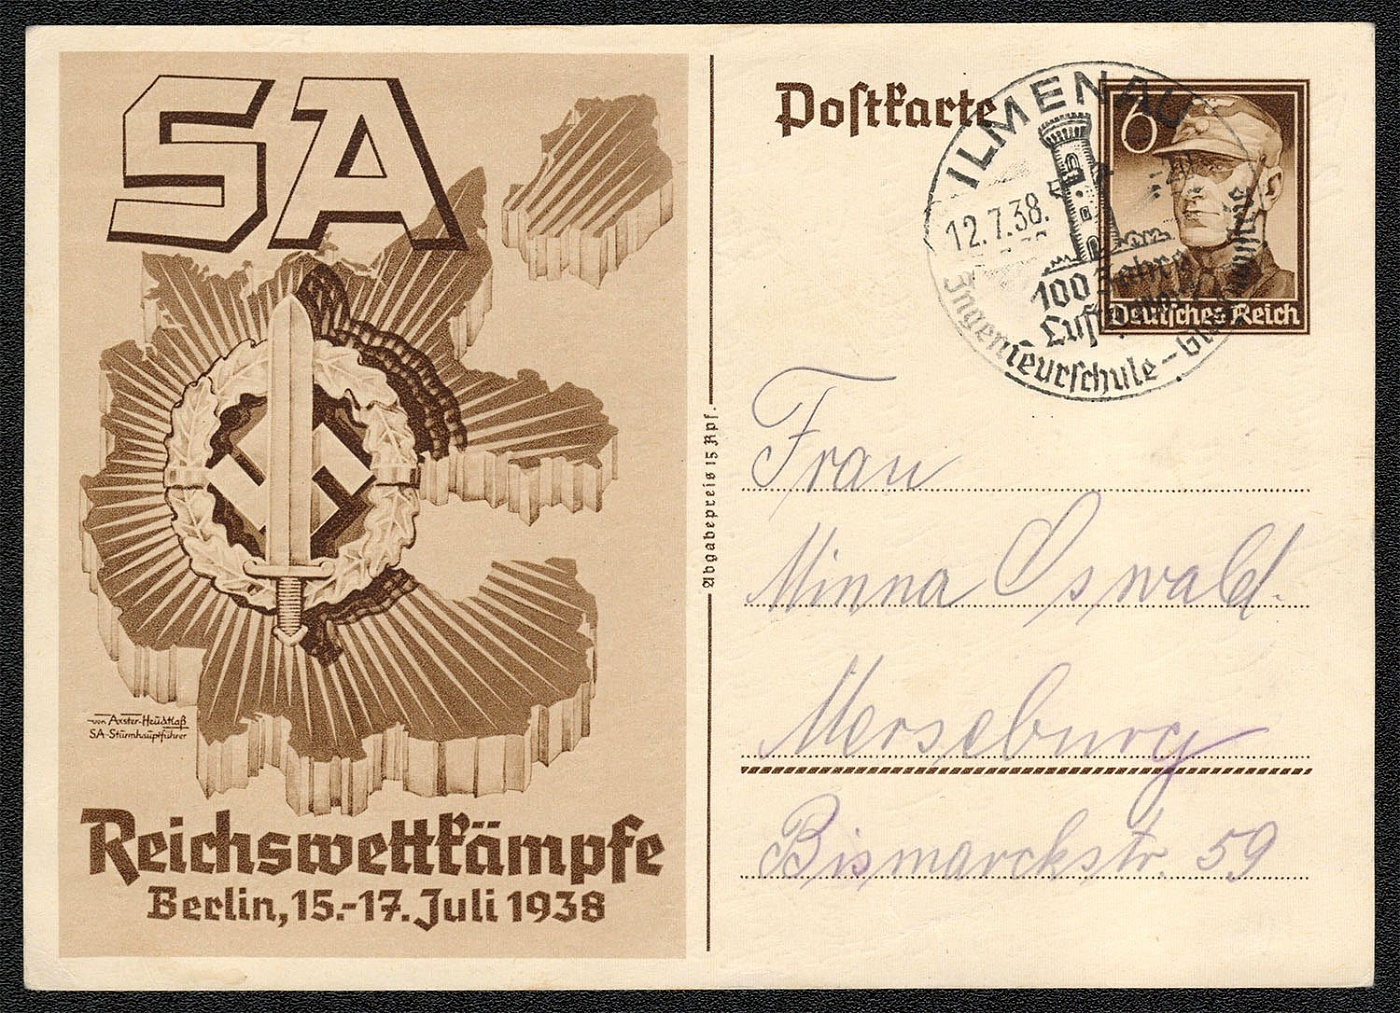 SA
von Axster-Heudtlaß
SA-Sturmhauptführer
Reichswettkämpfe
Berlin, 15.-17. Juli 1938
Abgabepreis 15 Rpf.
Postkarte
ILMENAU
12.7.38.
100 Jahre
Ingenieurschule –
6
Deutsches Reich
Frau
Minna Oswald.
Merseburg
Bismarckstr. 59